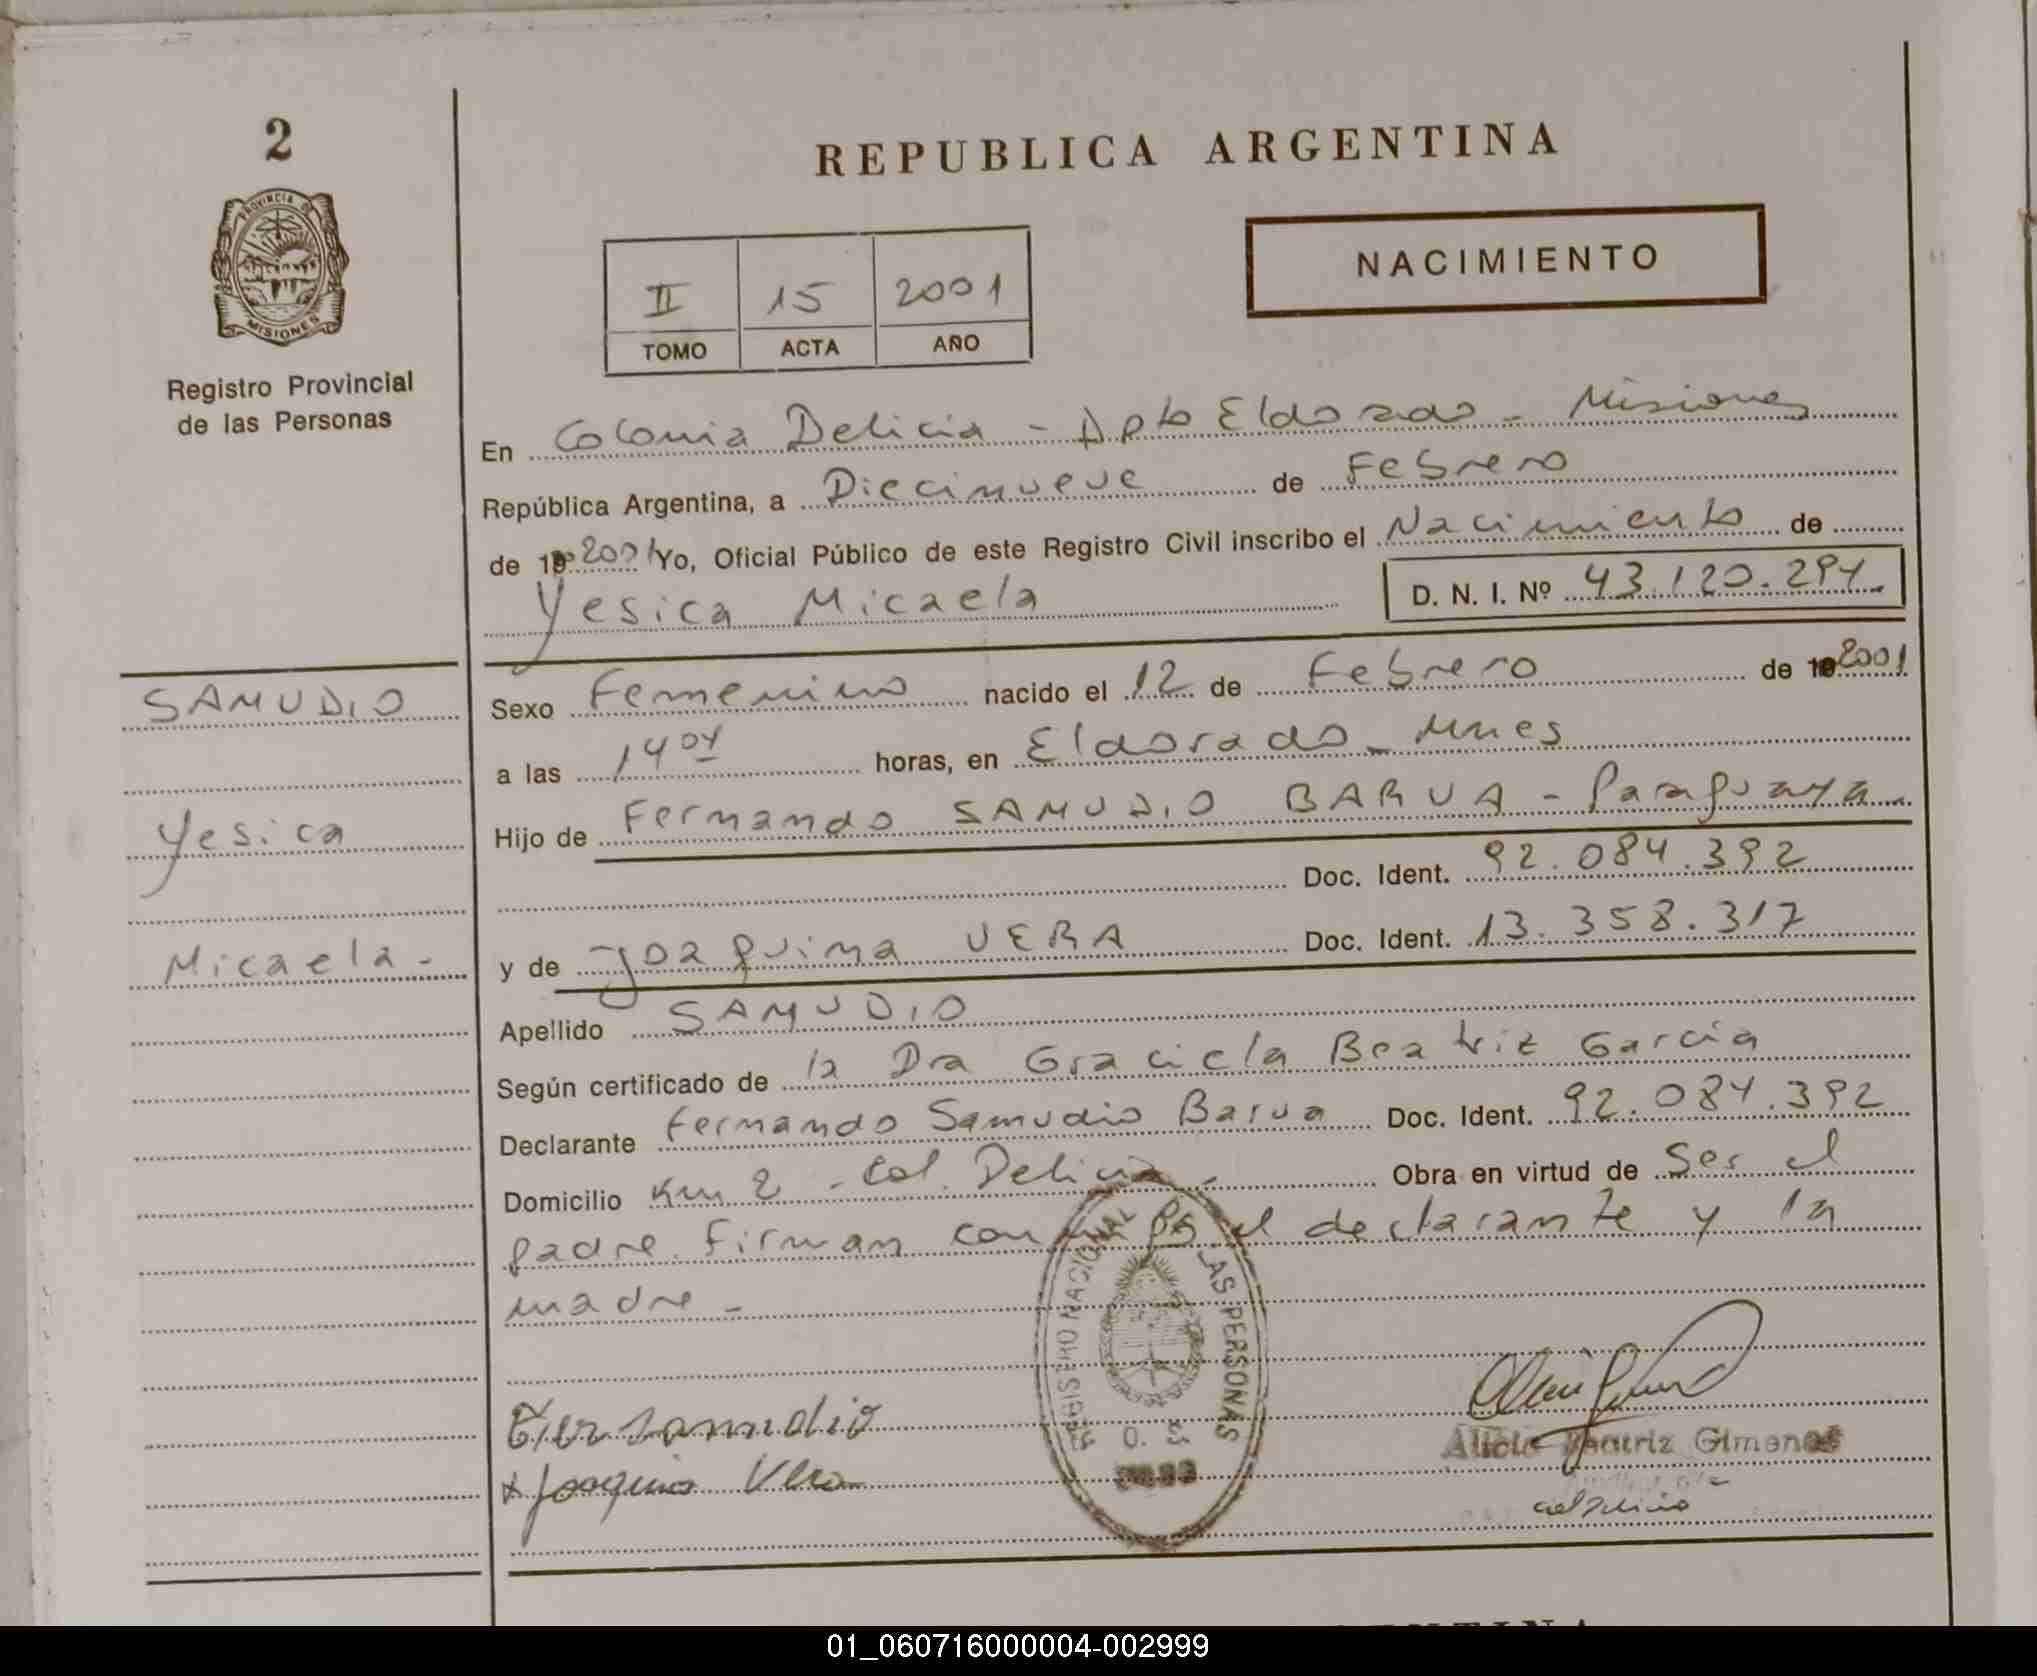 2
REPUBLICA ARGENTINA
PROVINCIA DE
MISIONES
NACIMIENTO
II 15 2001
TOMO ACTA AÑO
Registro Provincial
de las Personas
En Colonia Delicia - Dpto Eldorado - Misiones
República Argentina, a Diecinueve de Febrero
de 19 2001 Yo, Oficial Público de este Registro Civil inscribo el Nacimiento de
Yesica Micaela D. N. I. Nº 43.120.294.
SAMUDIO
Yesica
Micaela -
Sexo Femenino nacido el 12 de Febrero de 19 2001
a las 14 04 horas, en Eldorado - Mnes
Hijo de Fernando SAMUDIO BARUA - Paraguaya
Doc. Ident. 92.084.392
y de Joaquina VERA Doc. Ident. 13.358.317
Apellido SAMUDIO
Según certificado de la Dra Graciela Beatriz Garcia
Declarante Fernando Samudio Barua Doc. Ident. 92.084.392
Domicilio Km 2 - Col. Delicia - Obra en virtud de Ser el
padre. Firman con el declarante y la
madre -
REGISTRO NACIONAL DE LAS PERSONAS
Fer Samudio
x Joaquina Vera
Alicia Beatriz Gimenez
01_060716000004-002999